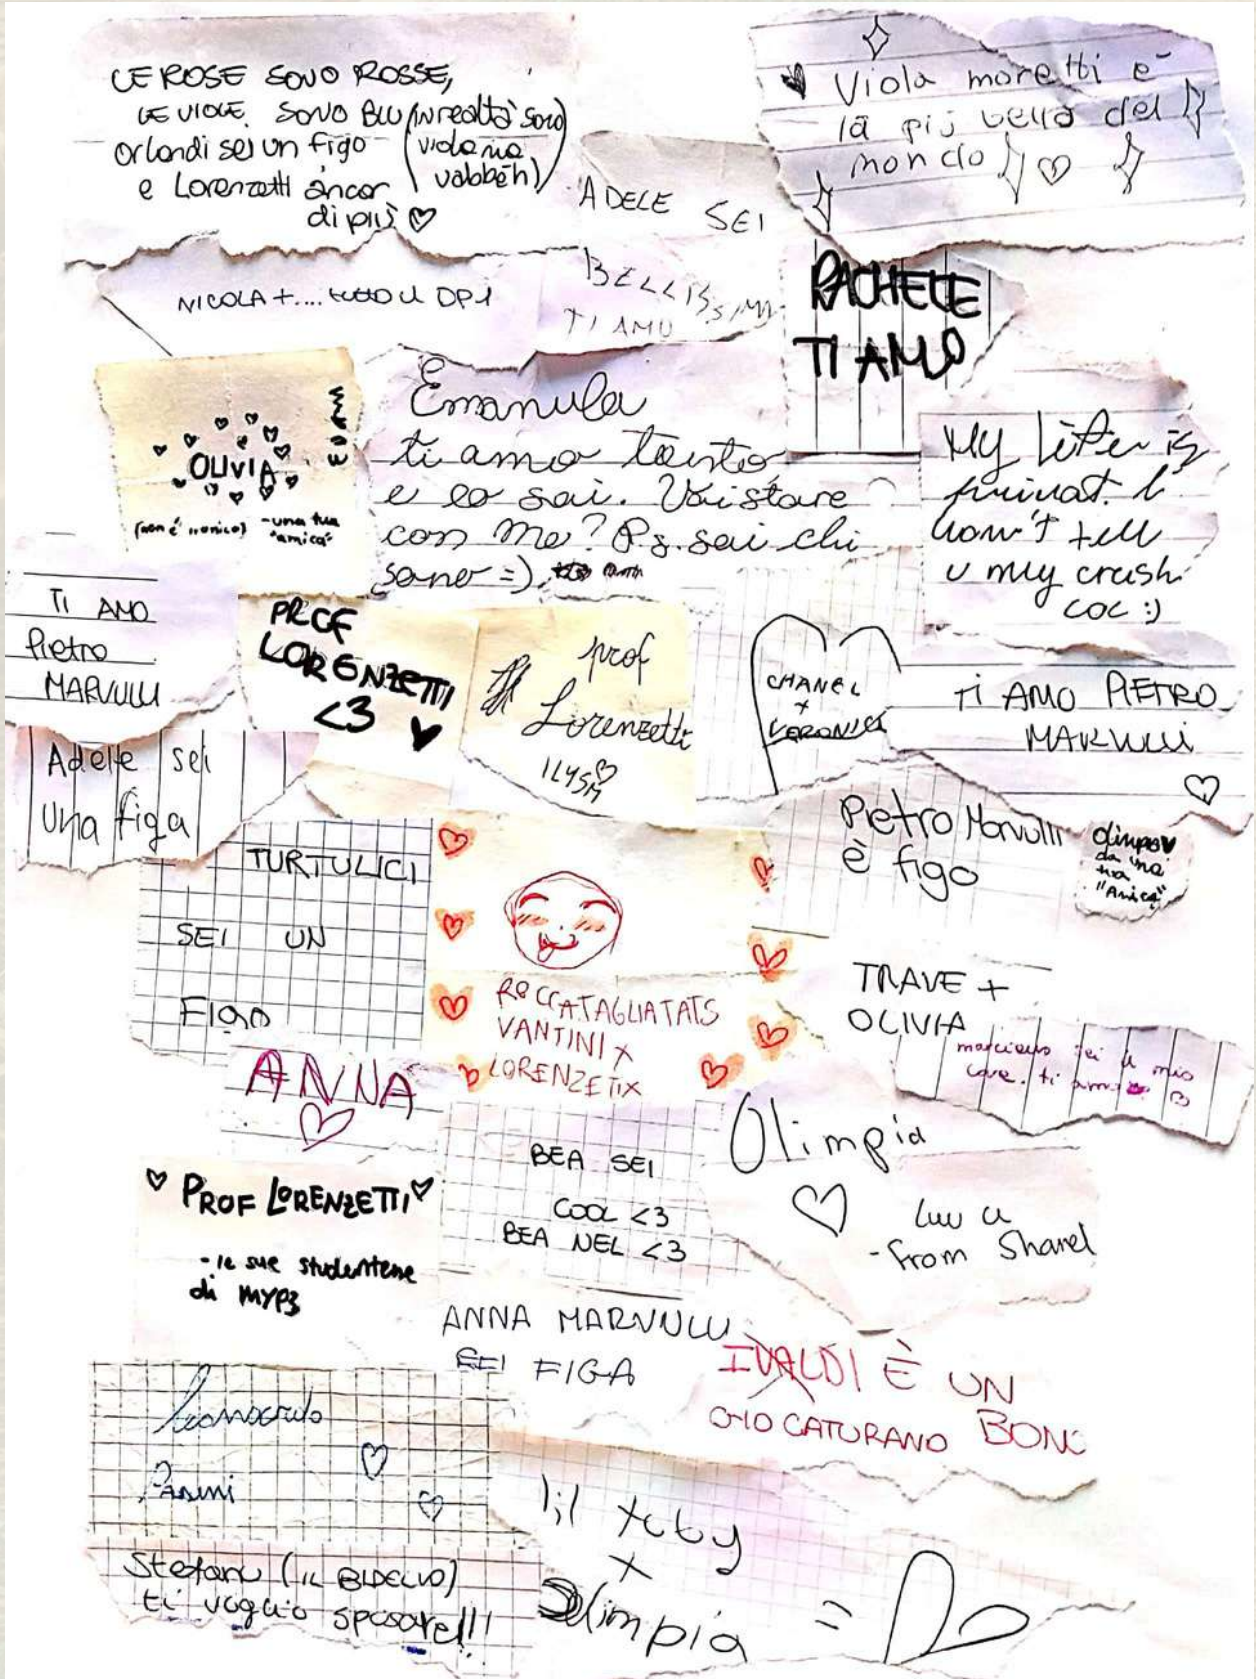 LE ROSE SONO ROSSE,
LE VIOLE SONO BLU (in realtà sono
viola ma
vabbeh)
Orlandi sei un figo
e Lorenzetti ancor
di più ♡
♥ Viola moretti è
la più bella del
mondo ♡
ADELE SEI
BELLISSIMA
TI AMO
NICOLA + .... tutto il DP1
RACHELE
TI AMO
OLIVIA
(non è ironico) -una tua
"amica"
Emanula
ti amo tanto
e lo sai. Vuoi stare
con me? P.s. sai chi
sono =)
My
is
tell
u my crush
LOL :)
TI AMO
Pietro
MARVULLI
PROF
LORENZETTI
<3 ♥
prof
Lorenzetti
ILYSM
CHANEL
+
VERONICA
TI AMO PIETRO
MARVULLI
♡
Adele sei
una figa
TURTULICI
SEI UN
FIGO
Pietro Marvulli
è figo
Olimpo♥
da una
tua
"Amica"
ROCCATAGLIATATS
VANTINI X
LORENZETIX
TRAVE +
OLIVIA
sei il mio
ti amo
ANNA
♡
BEA SEI
COOL <3
BEA NEL <3
Olimpia
♡ Luv u
- from Shanel
♡ PROF LORENZETTI ♡
- le sue studentene
di MYP3
ANNA MARVULLI
SEI FIGA
IVALDI È UN
BONO
GIO CATURANO
Panini
Stefano (IL BIDELLO)
ti voglio sposare!!!
lil
+
Olimpia = ♡